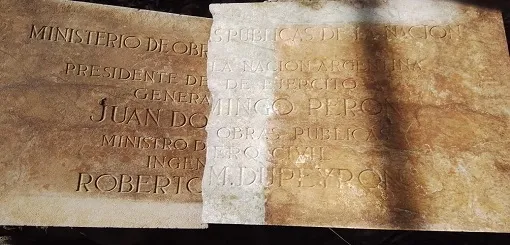 MINISTERIO DE OBRAS PUBLICAS DE LA NACION
PRESIDENTE DE LA NACION ARGENTINA
GENERAL DE EJERCITO
JUAN DOMINGO PERON
MINISTRO DE OBRAS PUBLICAS
INGENIERO CIVIL
ROBERTO M. DUPEYRON